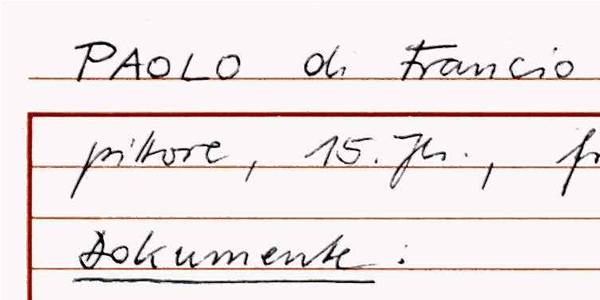 PAOLO di Francio
pittore, 15. Jh., fr
Dokumente: